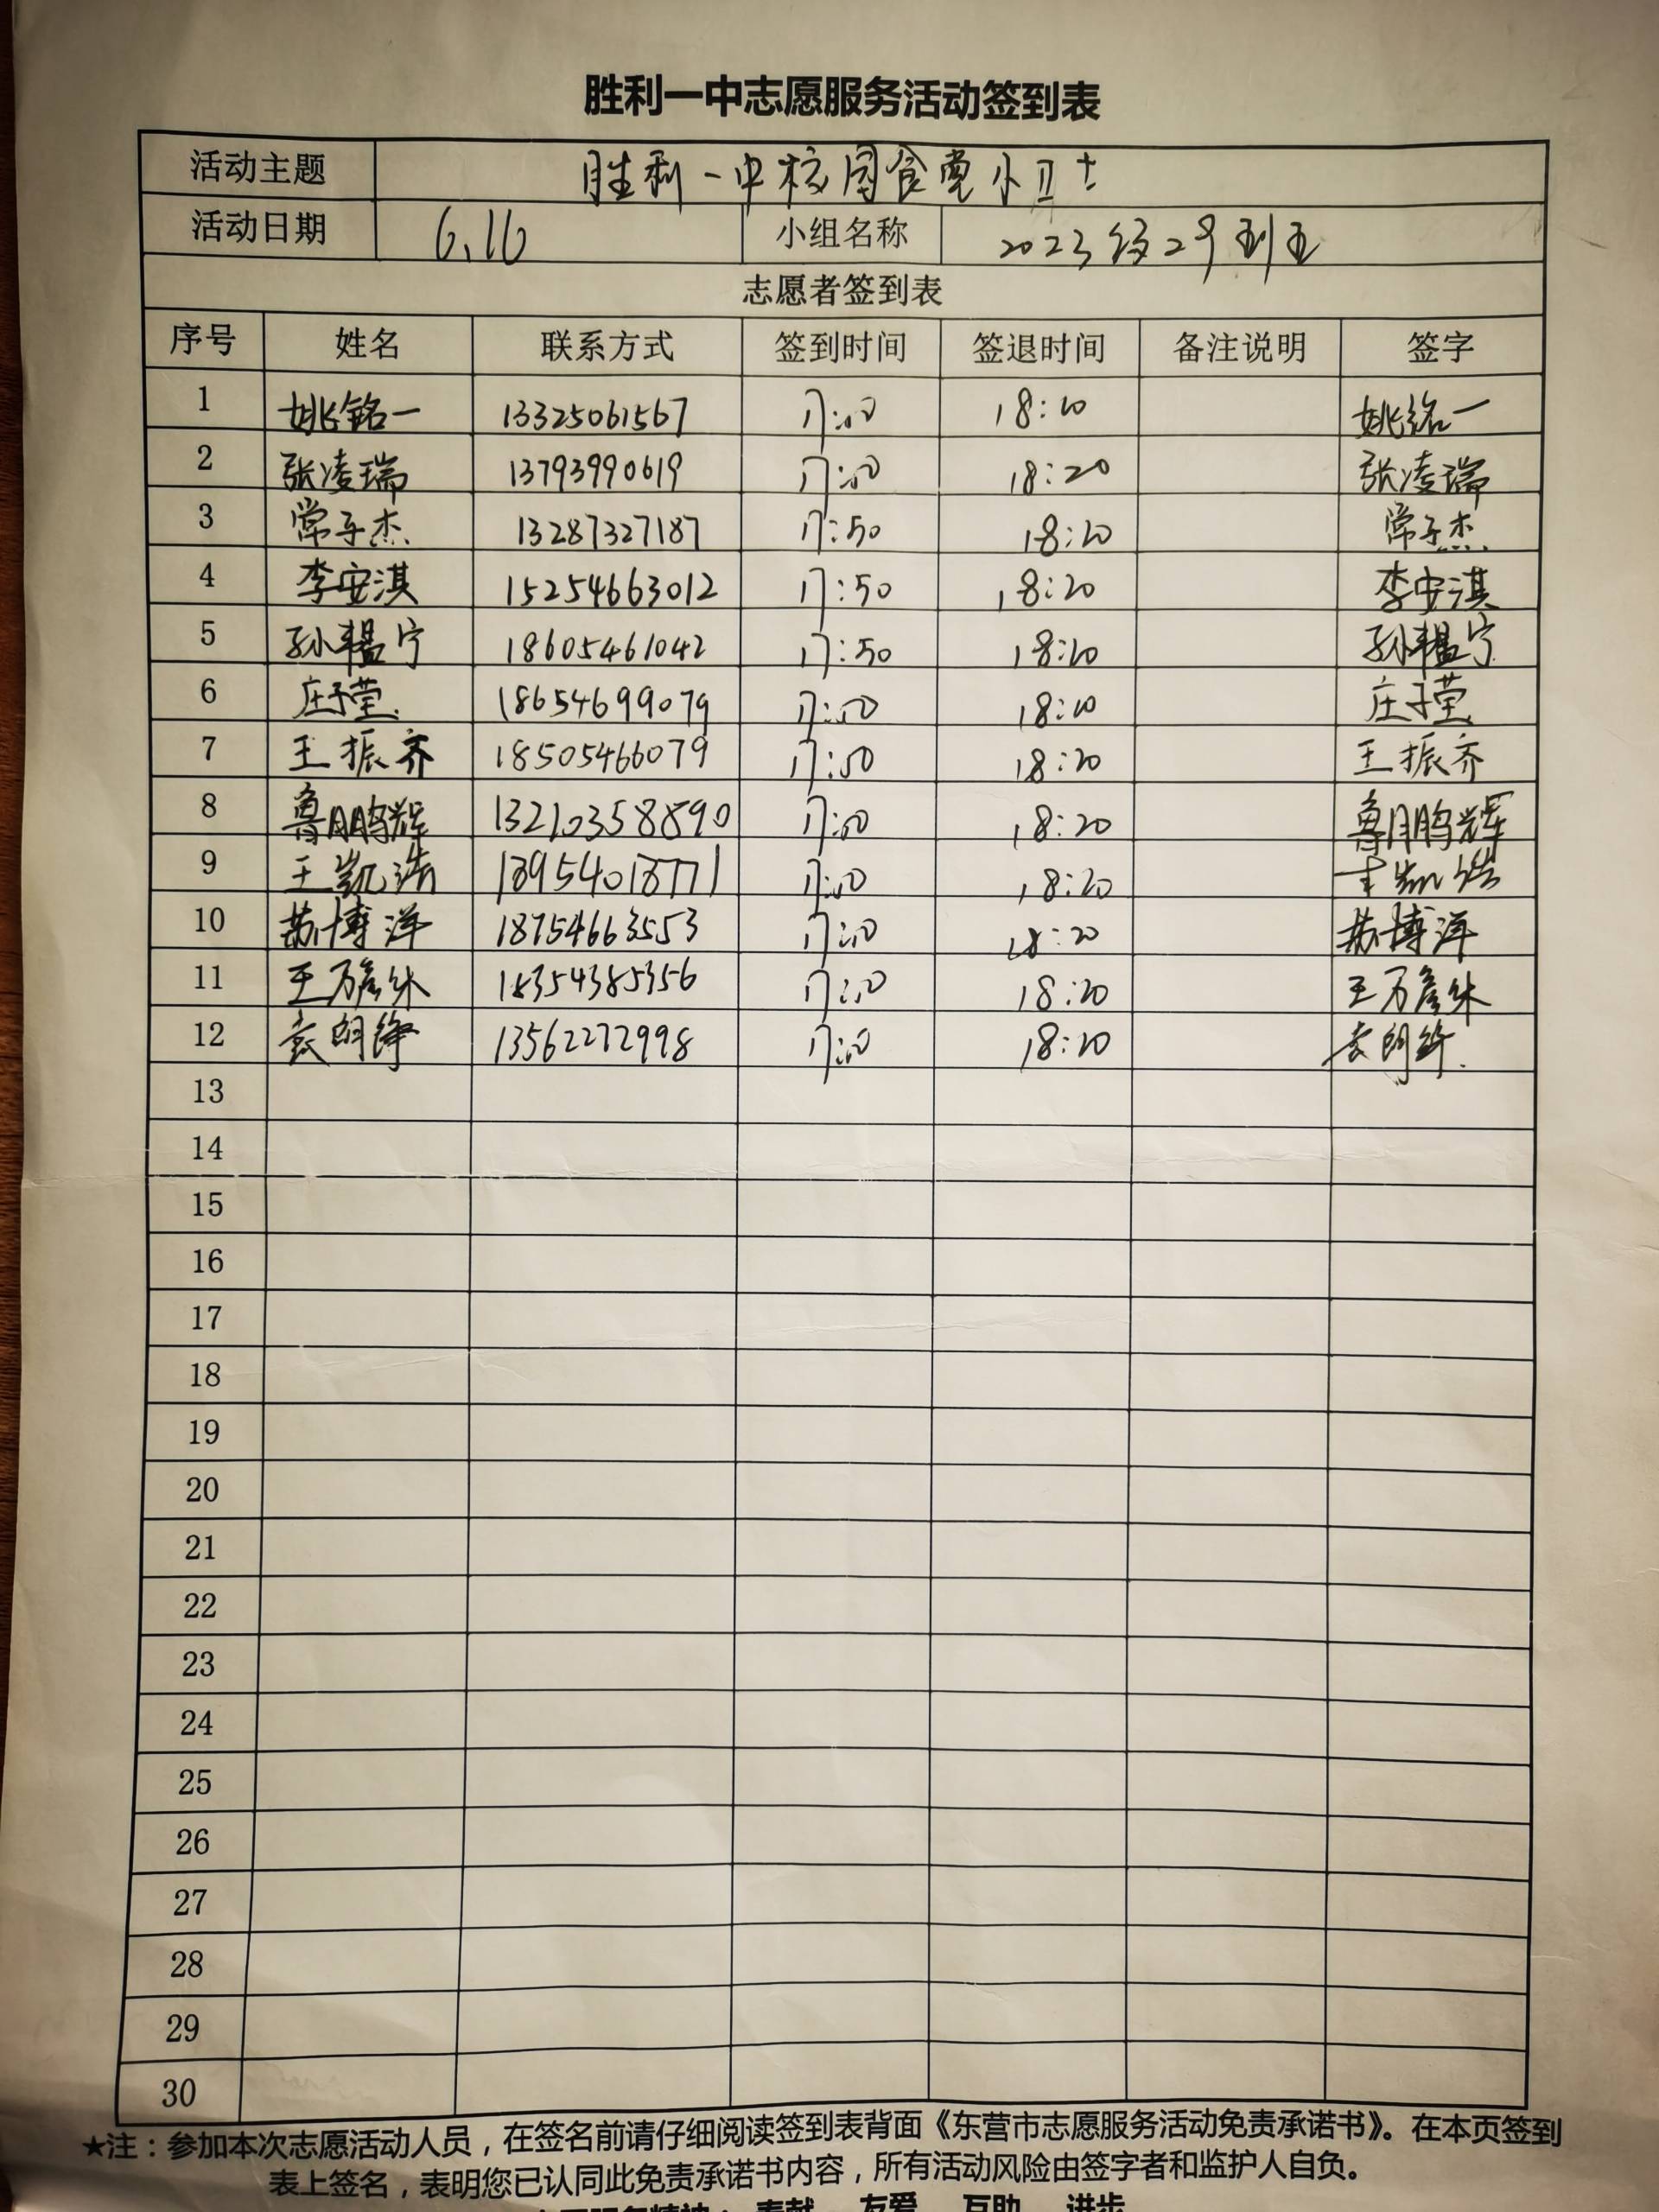 胜利一中志愿服务活动签到表
活动主题 胜利一中校园食堂小卫士
活动日期 6.16 小组名称 2023级2号
志愿者签到表
序号 姓名 联系方式 签到时间 签退时间 备注说明 签字
1 姚铭一 13325061567 17:50 18:20 姚铭一
2 张凌瑞 13793990619 17:50 18:20 张凌瑞
3 常子杰 13287327187 17:50 18:20 常子杰
4 李安淇 15254663012 17:50 18:20 李安淇
5 孙韫宁 18605461042 17:50 18:20 孙韫宁
6 庄子莹 18654699079 17:50 18:20 庄子莹
7 王振齐 18505466079 17:50 18:20 王振齐
8 鲁鹏辉 13210358890 17:50 18:20 鲁鹏辉
9 王凯浩 18954018771 17:50 18:20 王凯浩
10 苏博洋 18754663553 17:50 18:20 苏博洋
11 王万彦林 18354385356 17:50 18:20 王万彦林
12 袁朗铮 13562272998 17:50 18:20 袁朗铮
13
14
15
16
17
18
19
20
21
22
23
24
25
26
27
28
29
30
★注：参加本次志愿活动人员，在签名前请仔细阅读签到表背面《东营市志愿服务活动免责承诺书》。在本页签到
表上签名，表明您已认同此免责承诺书内容，所有活动风险由签字者和监护人自负。
奉献 友爱 互助 进步